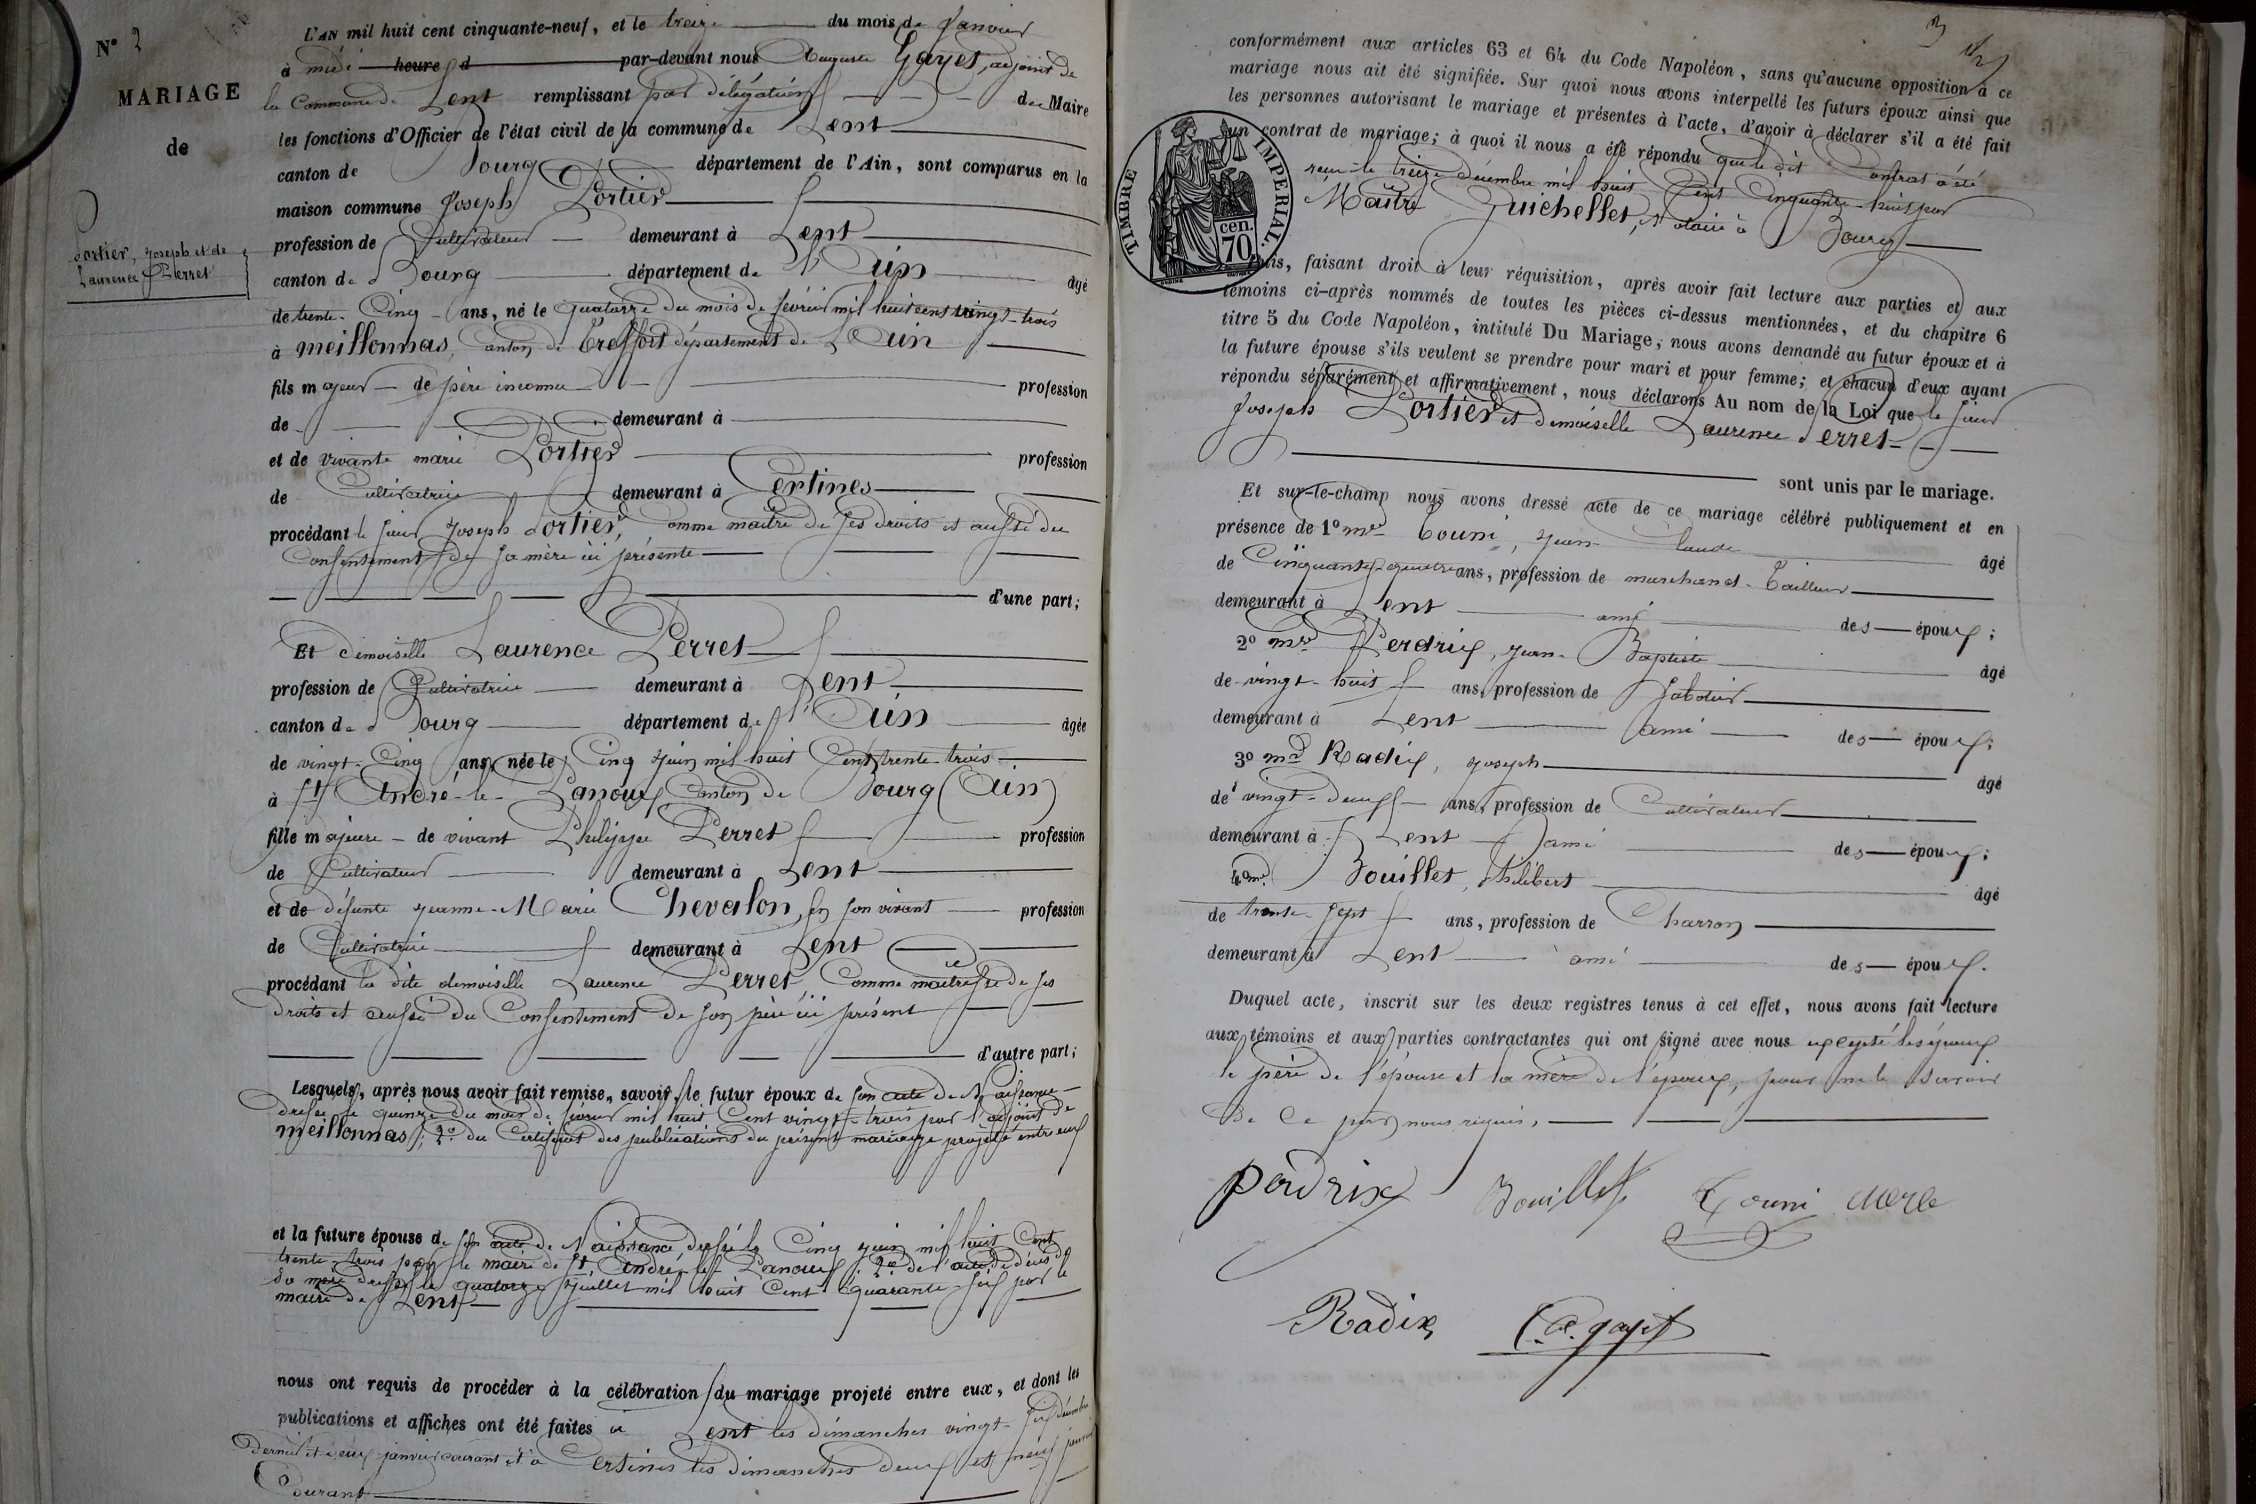 N° 2
MARIAGE
de
Portier, Joseph et de
Laurence Perret
L'AN mil huit cent cinquante-neuf, et le treize du mois de Janvier
à midi heure d par-devant nous Auguste Gayet, adjoint de
la Commune de Lent remplissant par délégation de Maire
les fonctions d'Officier de l'état civil de la commune de Lent
canton de Bourg département de l'Ain, sont comparus en la
maison commune Joseph Portier
profession de Cultivateur demeurant à Lent
canton de Bourg département de l'Ain âgé
de trente-Cinq ans, né le quatorze du mois de février mil huit cent vingt-trois
à meillonnas, Canton de Treffort département de L'Ain
fils majeur de père inconnu profession
de demeurant à
et de vivante marie Portier profession
de Cultivatrice demeurant à Certines
procédant le sieur Joseph Portier, Comme maître de ses droits et aussi du
Consentement de sa mère ici présente
d'une part;
Et demoiselle Laurence Perret
profession de Cultivatrice demeurant à Lent
canton de Bourg département de l'Ain âgée
de vingt-Cinq ans, née le Cinq Juin mil huit Cent trente-trois
à St André-le-Panoux Canton de Bourg (Ain)
fille majeure de vivant Philippe Perret profession
de Cultivateur demeurant à Lent
et de défunte Jeanne-Marie Chevalon, en son vivant profession
de Cultivatrice demeurant à Lent
procédant la dite demoiselle Laurence Perret Comme maîtresse de ses
droits et aussi du Consentement de son père ici présent
d'autre part;
Lesquels, après nous avoir fait remise, savoir, le futur époux de son acte de Naissance
dressé le quinze du mois de février mil huit Cent vingt-trois par l'adjoint de
meillonnas; 2° du Certificat des publications du présent mariage projeté entre eux
et la future épouse de son acte de Naissance, dressé le Cinq Juin mil huit Cent
trente-trois par le maire de St André-le-Panoux 2° de l'acte de décès de
sa mère dressé le quatorze Juillet mil huit Cent quarante-six par le
maire de Lent
nous ont requis de procéder à la célébration du mariage projeté entre eux, et dont les
publications et affiches ont été faites à Lent les dimanches vingt-six décembre
dernier et deux janvier courant et à Certines les dimanches deux et neuf janvier
Courant
conformément aux articles 63 et 64 du Code Napoléon, sans qu'aucune opposition à ce
mariage nous ait été signifiée. Sur quoi nous avons interpellé les futurs époux ainsi que
les personnes autorisant le mariage et présentes à l'acte, d'avoir à déclarer s'il a été fait
un contrat de mariage; à quoi il nous a été répondu que le dit Contrat a été
reçu le treize décembre mil huit Cent Cinquante-huit par
Maître Guichellet, Notaire à Bourg
TIMBRE IMPERIAL.
cen.
70
Puis, faisant droit à leur réquisition, après avoir fait lecture aux parties et aux
témoins ci-après nommés de toutes les pièces ci-dessus mentionnées, et du chapitre 6
titre 5 du Code Napoléon, intitulé Du Mariage, nous avons demandé au futur époux et à
la future épouse s'ils veulent se prendre pour mari et pour femme; et chacun d'eux ayant
répondu séparément et affirmativement, nous déclarons Au nom de la Loi que le sieur
Joseph Portier et demoiselle Laurence Perret
sont unis par le mariage.
Et sur-le-champ nous avons dressé acte de ce mariage célébré publiquement et en
présence de 1° mr Touni, Jean Claude âgé
de Cinquante-quatre ans, profession de marchand-Tailleur
demeurant à Lent ami des époux;
2° mr Perdrix, Jean-Baptiste âgé
de vingt-huit ans, profession de Sabotier
demeurant à Lent ami des époux;
3° mr Radix, Joseph âgé
de vingt-deux ans, profession de Cultivateur
demeurant à Lent ami des époux;
4° mr Bouillet, Philibert âgé
de trente-sept ans, profession de Charron
demeurant à Lent ami des époux.
Duquel acte, inscrit sur les deux registres tenus à cet effet, nous avons fait lecture
aux témoins et aux parties contractantes qui ont signé avec nous excepté les époux
le père de l'épouse et la mère de l'époux, pour ne le savoir
De Ce par nous requis.
perdrix Bouillet Touni
Radix A. gayet